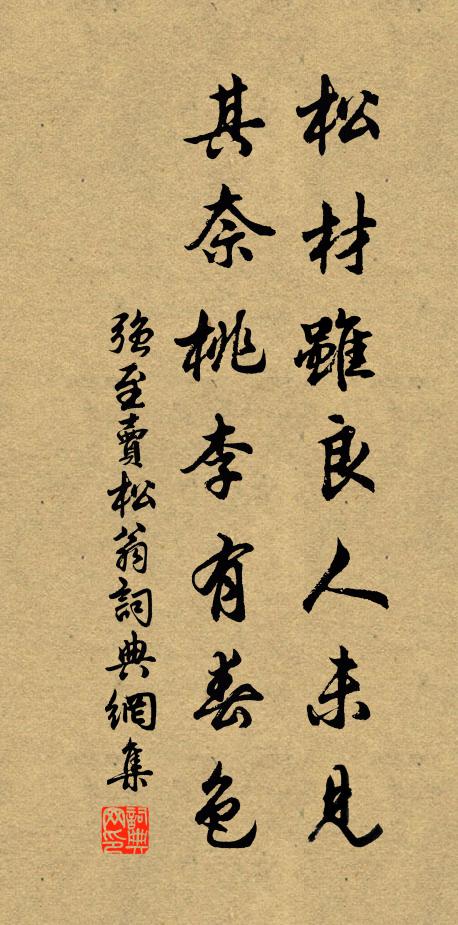 松材雖良人未見
其奈桃李有春色
強至賣松翁詞典網集
詞典网印